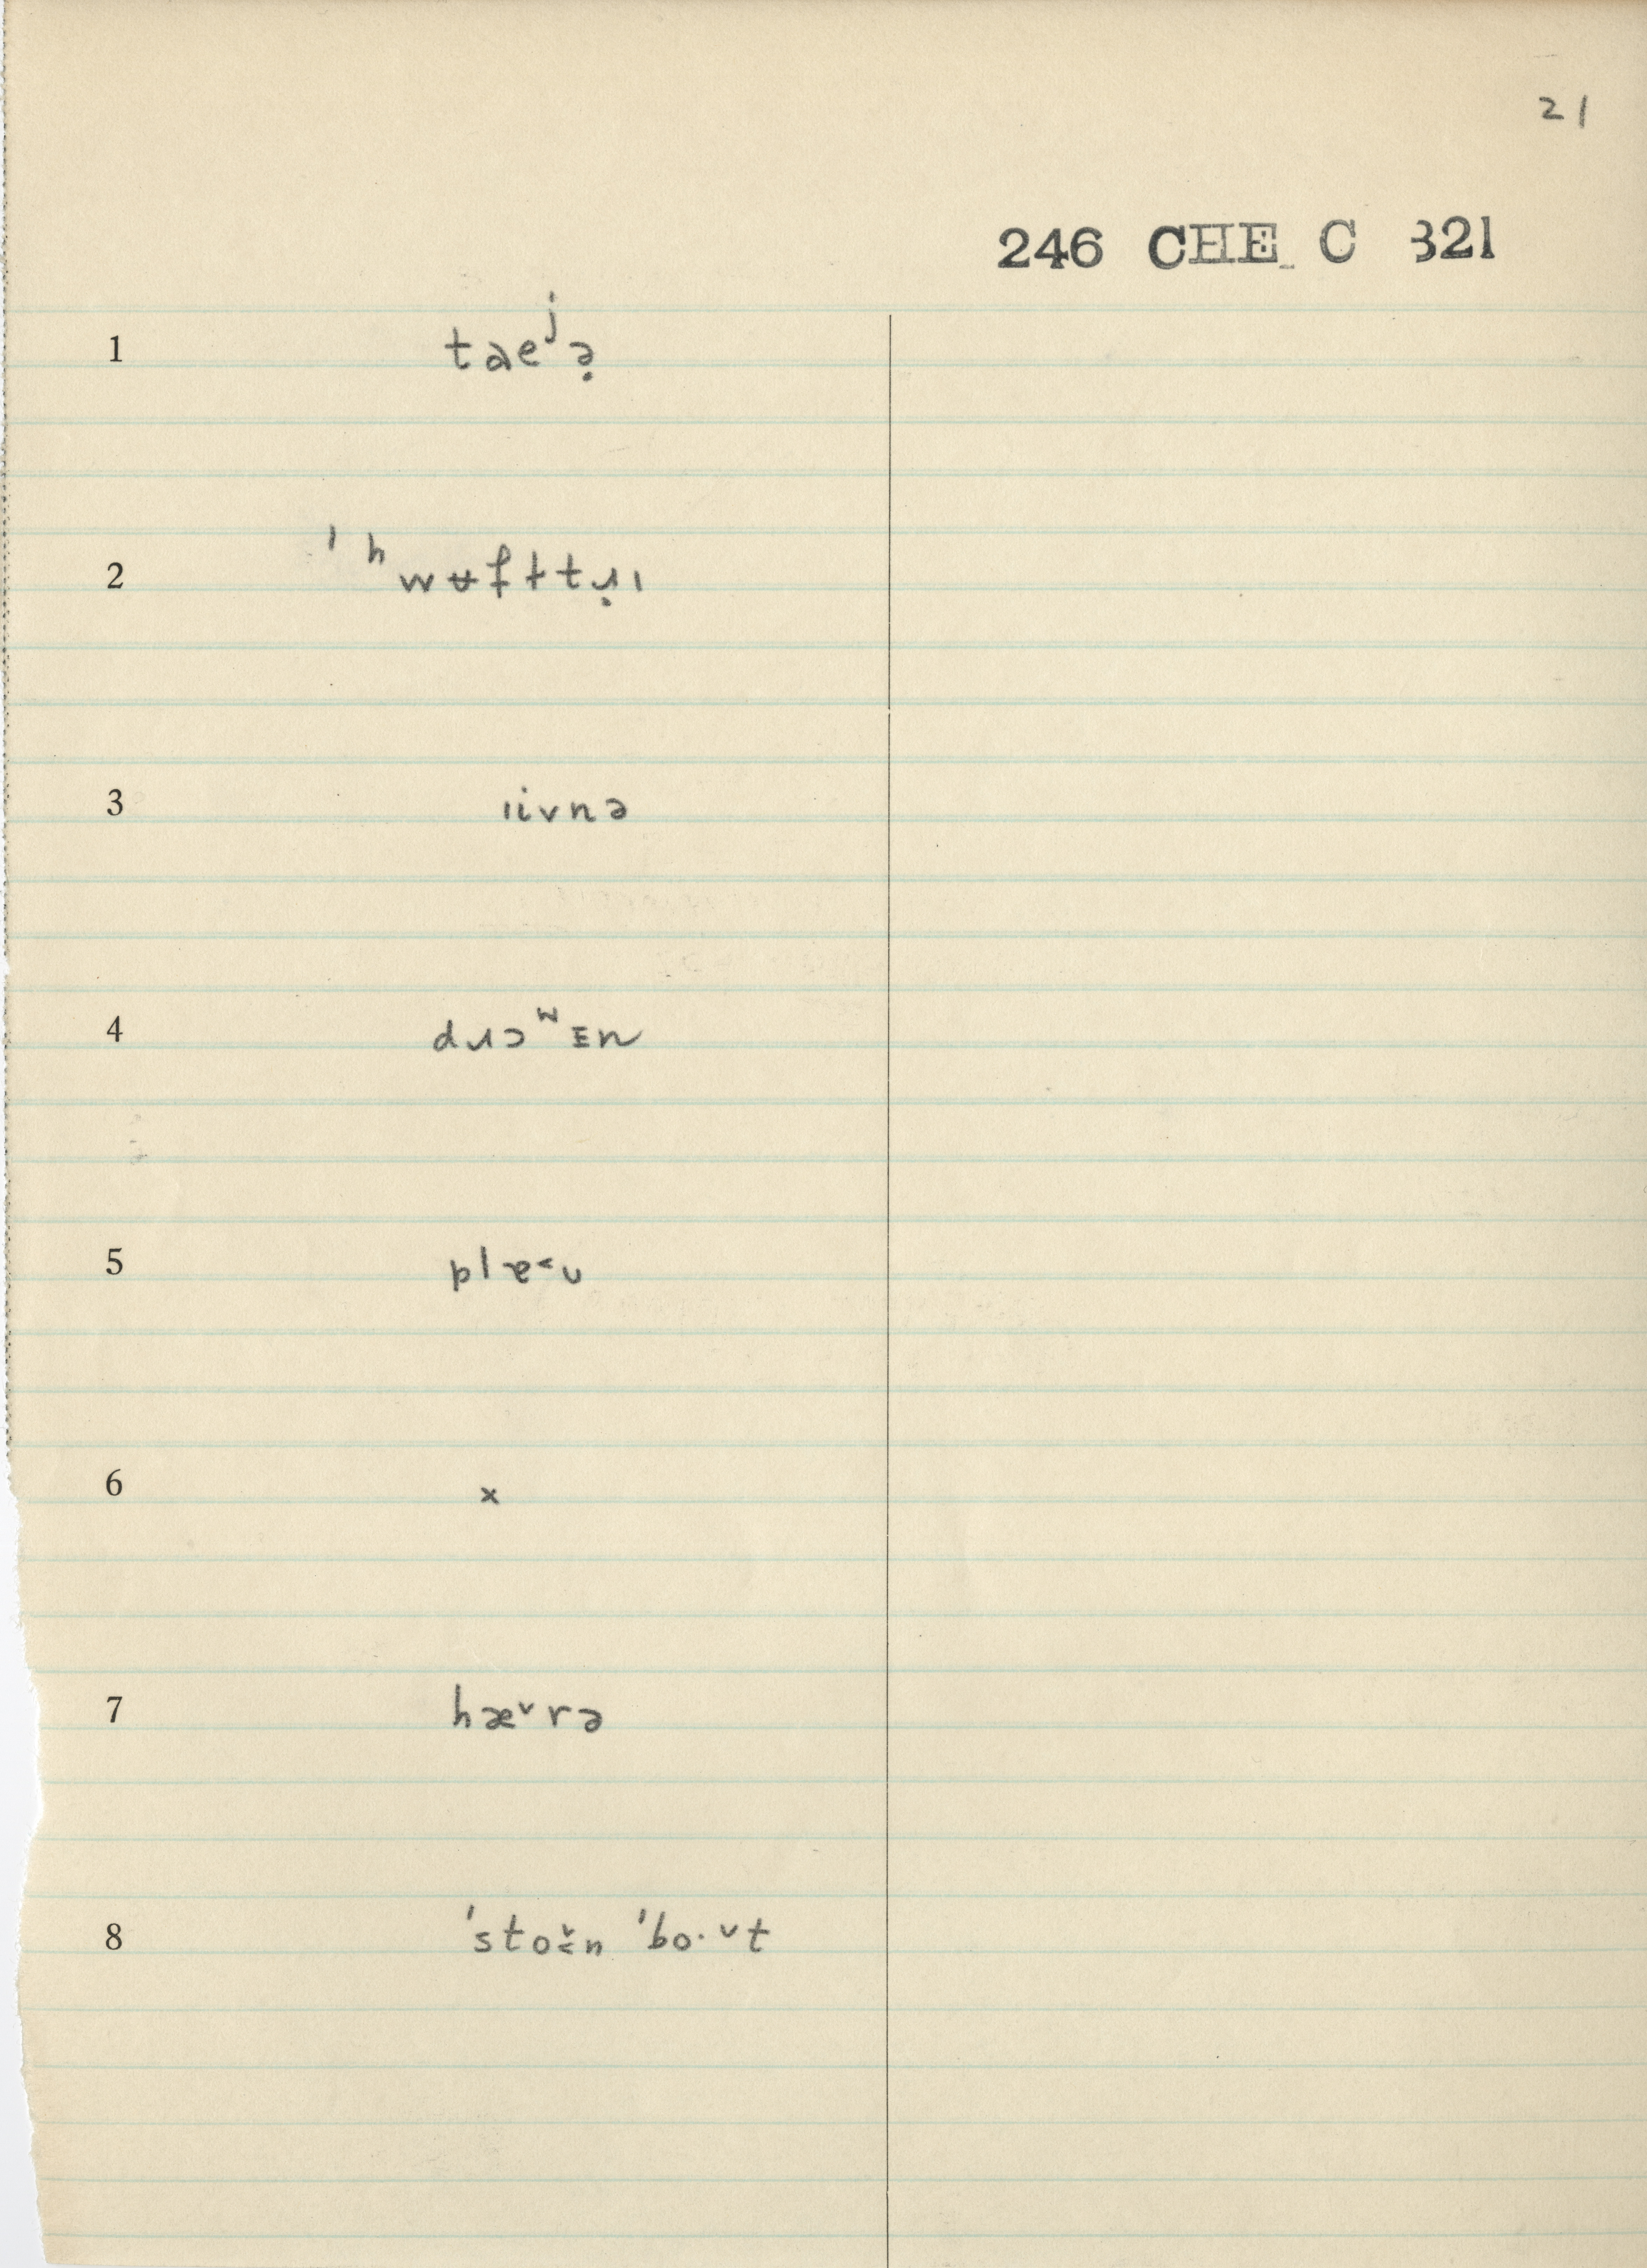 21
246 CHE C 321
1 taeʲə̣
2 ˈʰwʉf ƚtɹ̣ɪ
3 ɪivnə
4 dɹɔʷɪn
5 plɐ˂ʊ
6 x
7 hæ˅rə
8 ˈsto˅ɪn ˈbo·˅t